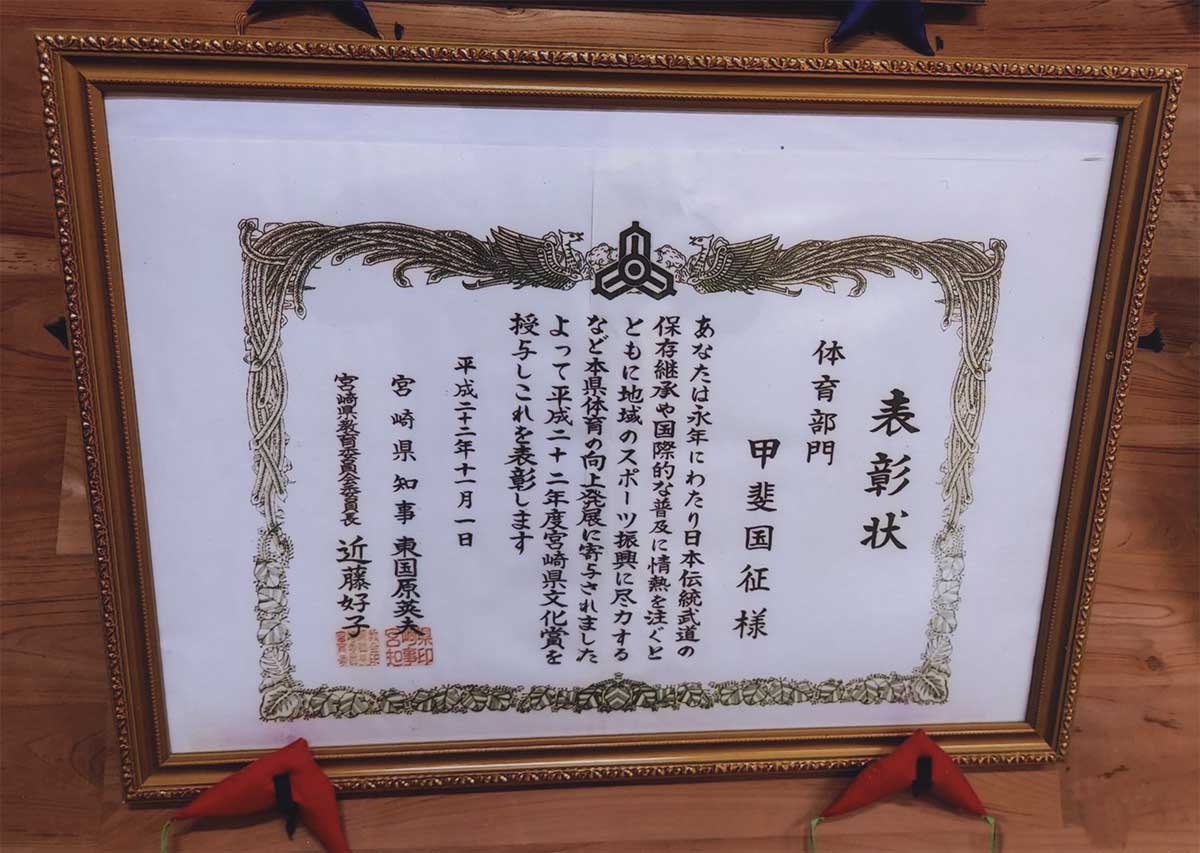 表彰状
体育部門
甲斐国征様
あなたは永年にわたり日本伝統武道の
保存継承や国際的な普及に情熱を注ぐと
ともに地域のスポーツ振興に尽力する
など本県体育の向上発展に寄与されました
よって平成二十二年度宮崎県文化賞を
授与しこれを表彰します
平成二十二年十一月一日
宮崎県知事 東国原英夫
宮崎県教育委員会委員長 近藤好子